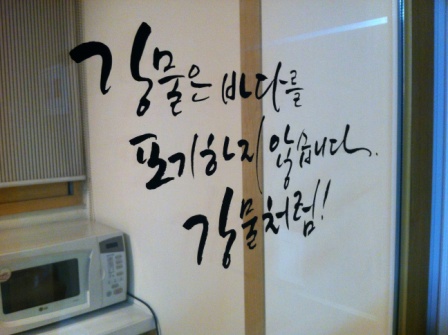 강물은 바다를
포기하지 않습니다.
강물처럼!
LG